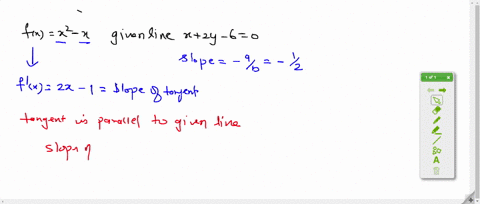 f(x) = x² - x given line x+2y-6=0
slope = -a/b = -1/2
f'(x) = 2x - 1 = slope of tangent
tangent is parallel to given line
slope of